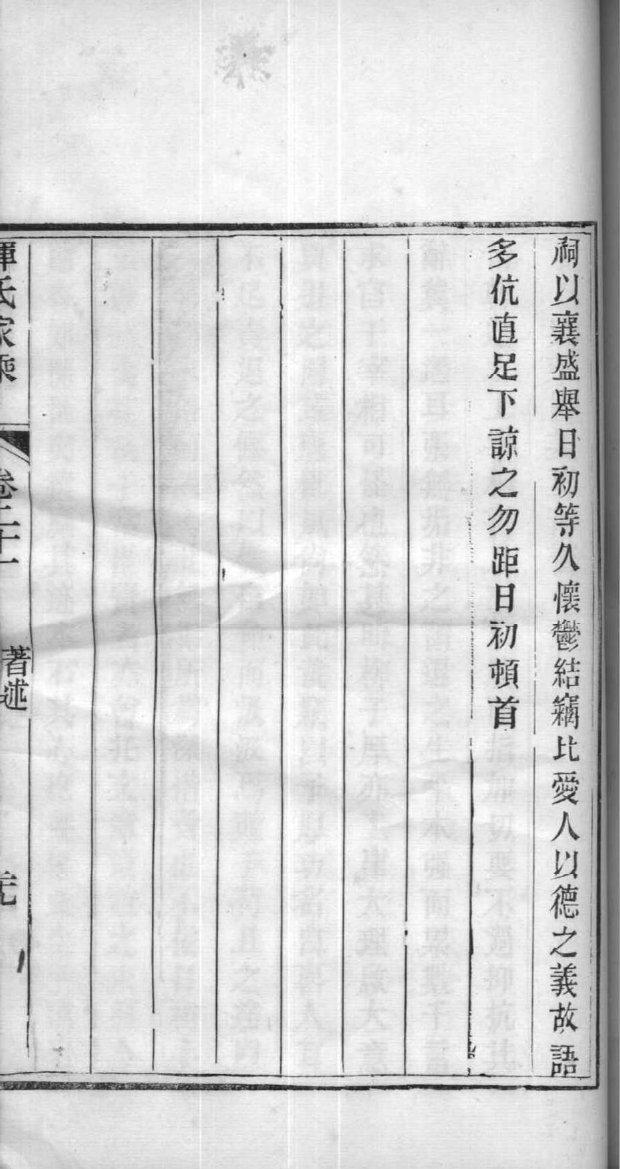 祠以襄盛舉日初等久懷鬱結竊比愛人以德之義故語
多伉直足下諒之勿距日初頓首
惲氏家乘
卷二十一
著述